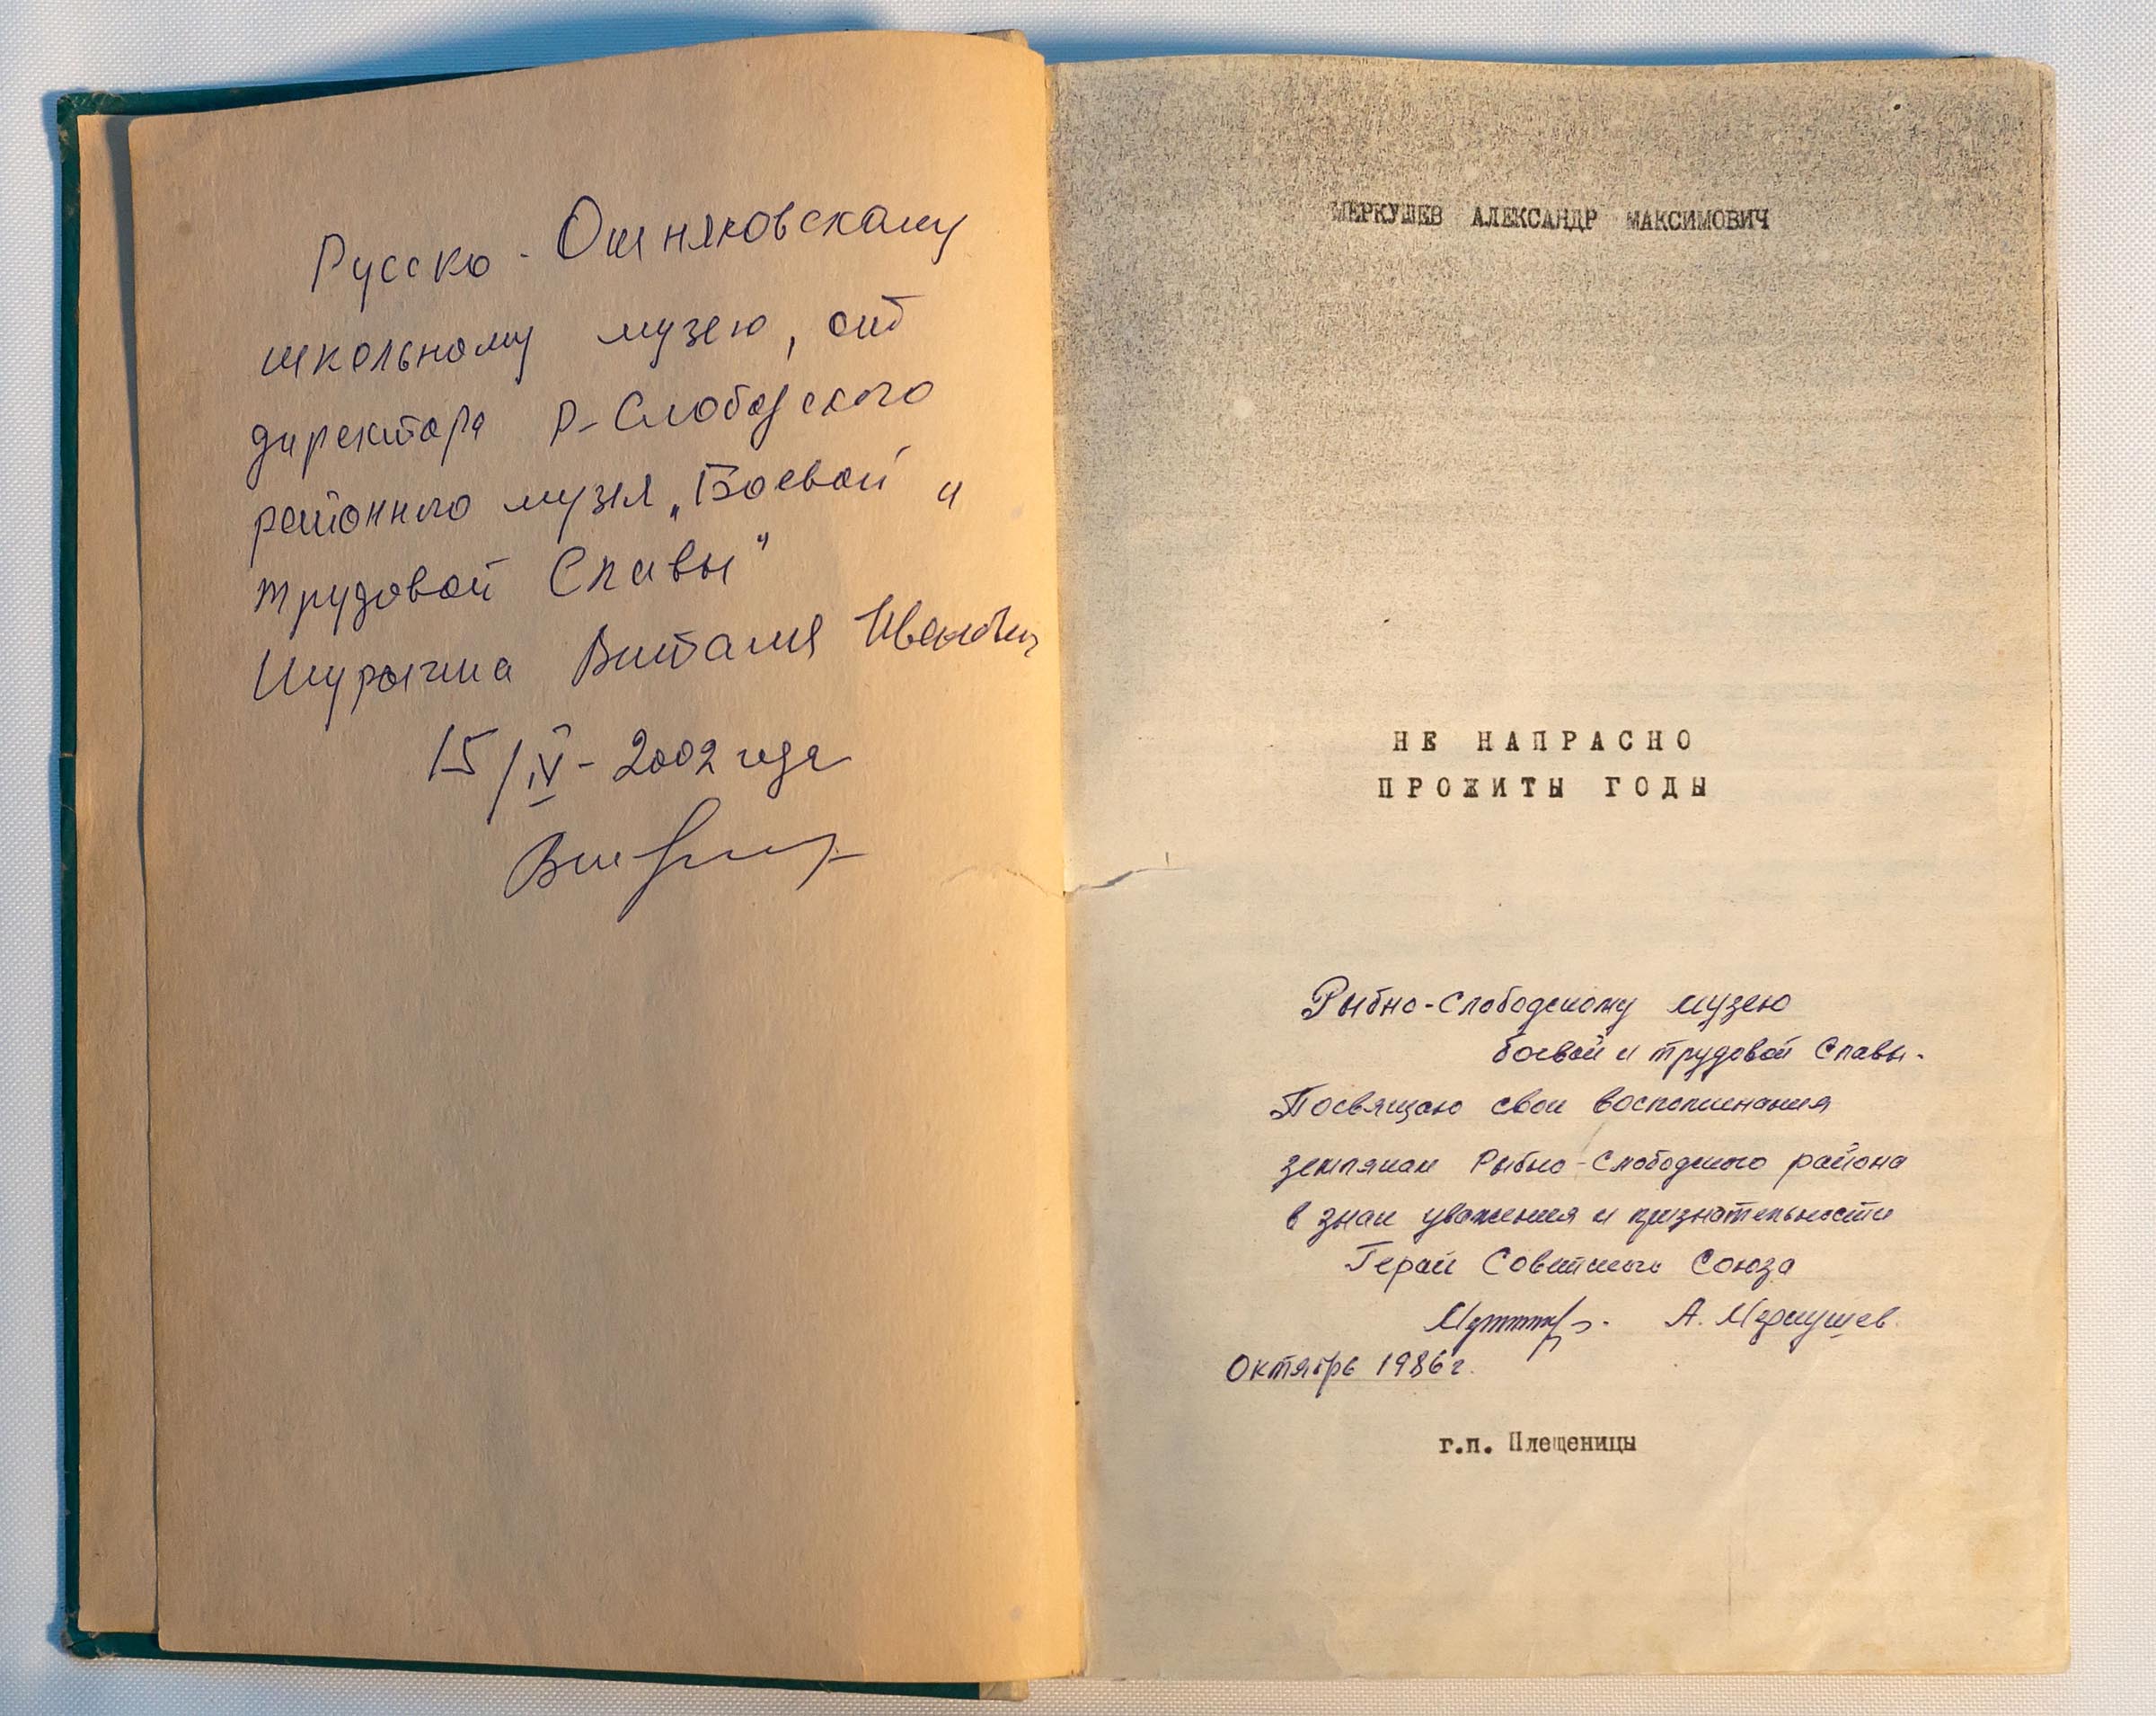 Русско - Ошняковскому
школьному музею, от
директора Р-Слободского
районного музея „Боевой и
трудовой Славы"
Шурыгина Виталия Иванович
15/IV - 2002 года
МЕРКУШЕВ АЛЕКСАНДР МАКСИМОВИЧ
НЕ НАПРАСНО
ПРОЖИТЫ ГОДЫ
Рыбно-Слободскому музею
боевой и трудовой Славы.
Посвящаю свои воспоминания
землякам Рыбно-Слободского района
в знак уважения и признательности
Герой Советского Союза
А. Меркушев.
Октябрь 1986г.
г.п. Плещеницы